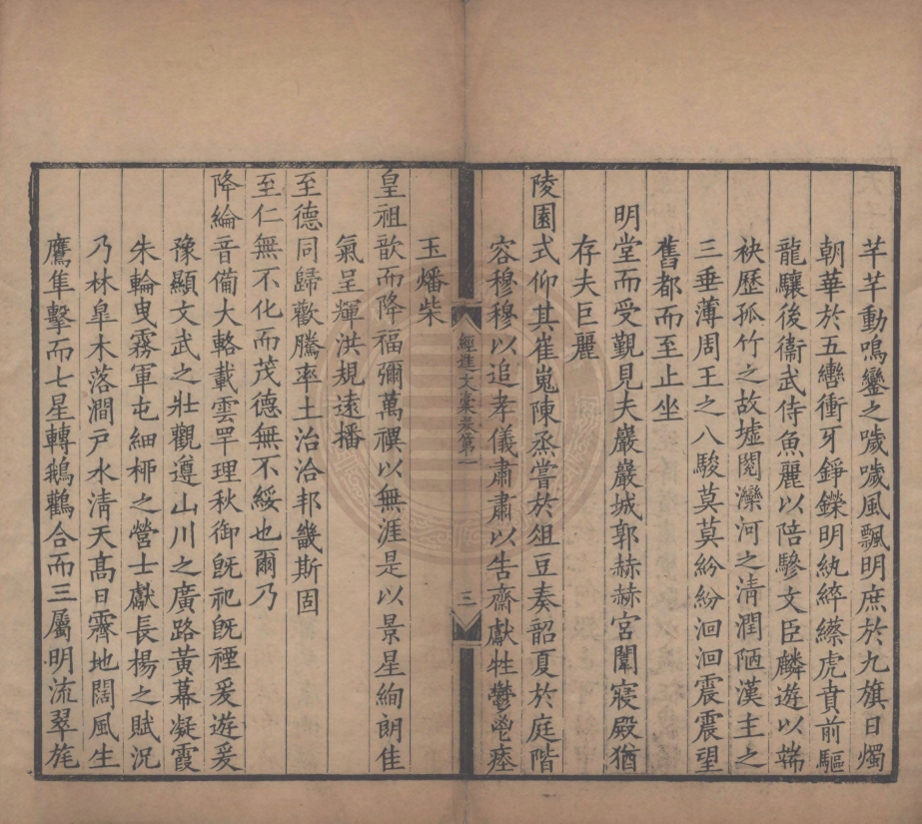 芊芊動鳴鑾之噦噦風飄明庶於九旗日燭
朝華於五轡衝牙錚鑅明紈綷縩虎賁前驅
龍驤後衞武侍魚麗以陪驂文臣麟遊以耑
袂歷孤竹之故墟閱灤河之淸潤陋漢主之
三垂薄周王之八駿莫莫紛紛洄洄震震望
舊都而至止坐
明堂而受覲見夫巖巖城郭赫赫宮闈寢殿猶
存夫巨麗
陵園式仰其崔嵬陳烝嘗於俎豆奏韶夏於庭階
容穆穆以追孝儀肅肅以吿齋獻牲鬱鬯瘞
經進文稾卷第一
三
玉燔柴
皇祖歆而降福彌萬禩以無涯是以景星絢朗佳
氣呈輝洪規遠播
至德同歸歡騰率土治洽邦畿斯固
至仁無不化而茂德無不綏也爾乃
降綸音備大輅載雲罕理秋御旣祀旣禋爰遊爰
豫顯文武之壯觀遵山川之廣路黃幕凝霞
朱輪曳霧軍屯細桺之營士獻長楊之賦況
乃林臯木落澗戶水淸天高日霽地闊風生
鷹隼擊而七星轉鵝鸛合而三屬明流翠旄